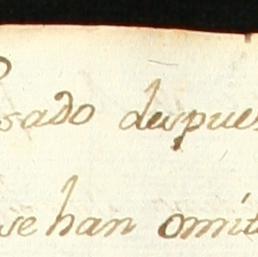 sado despues
se han omit